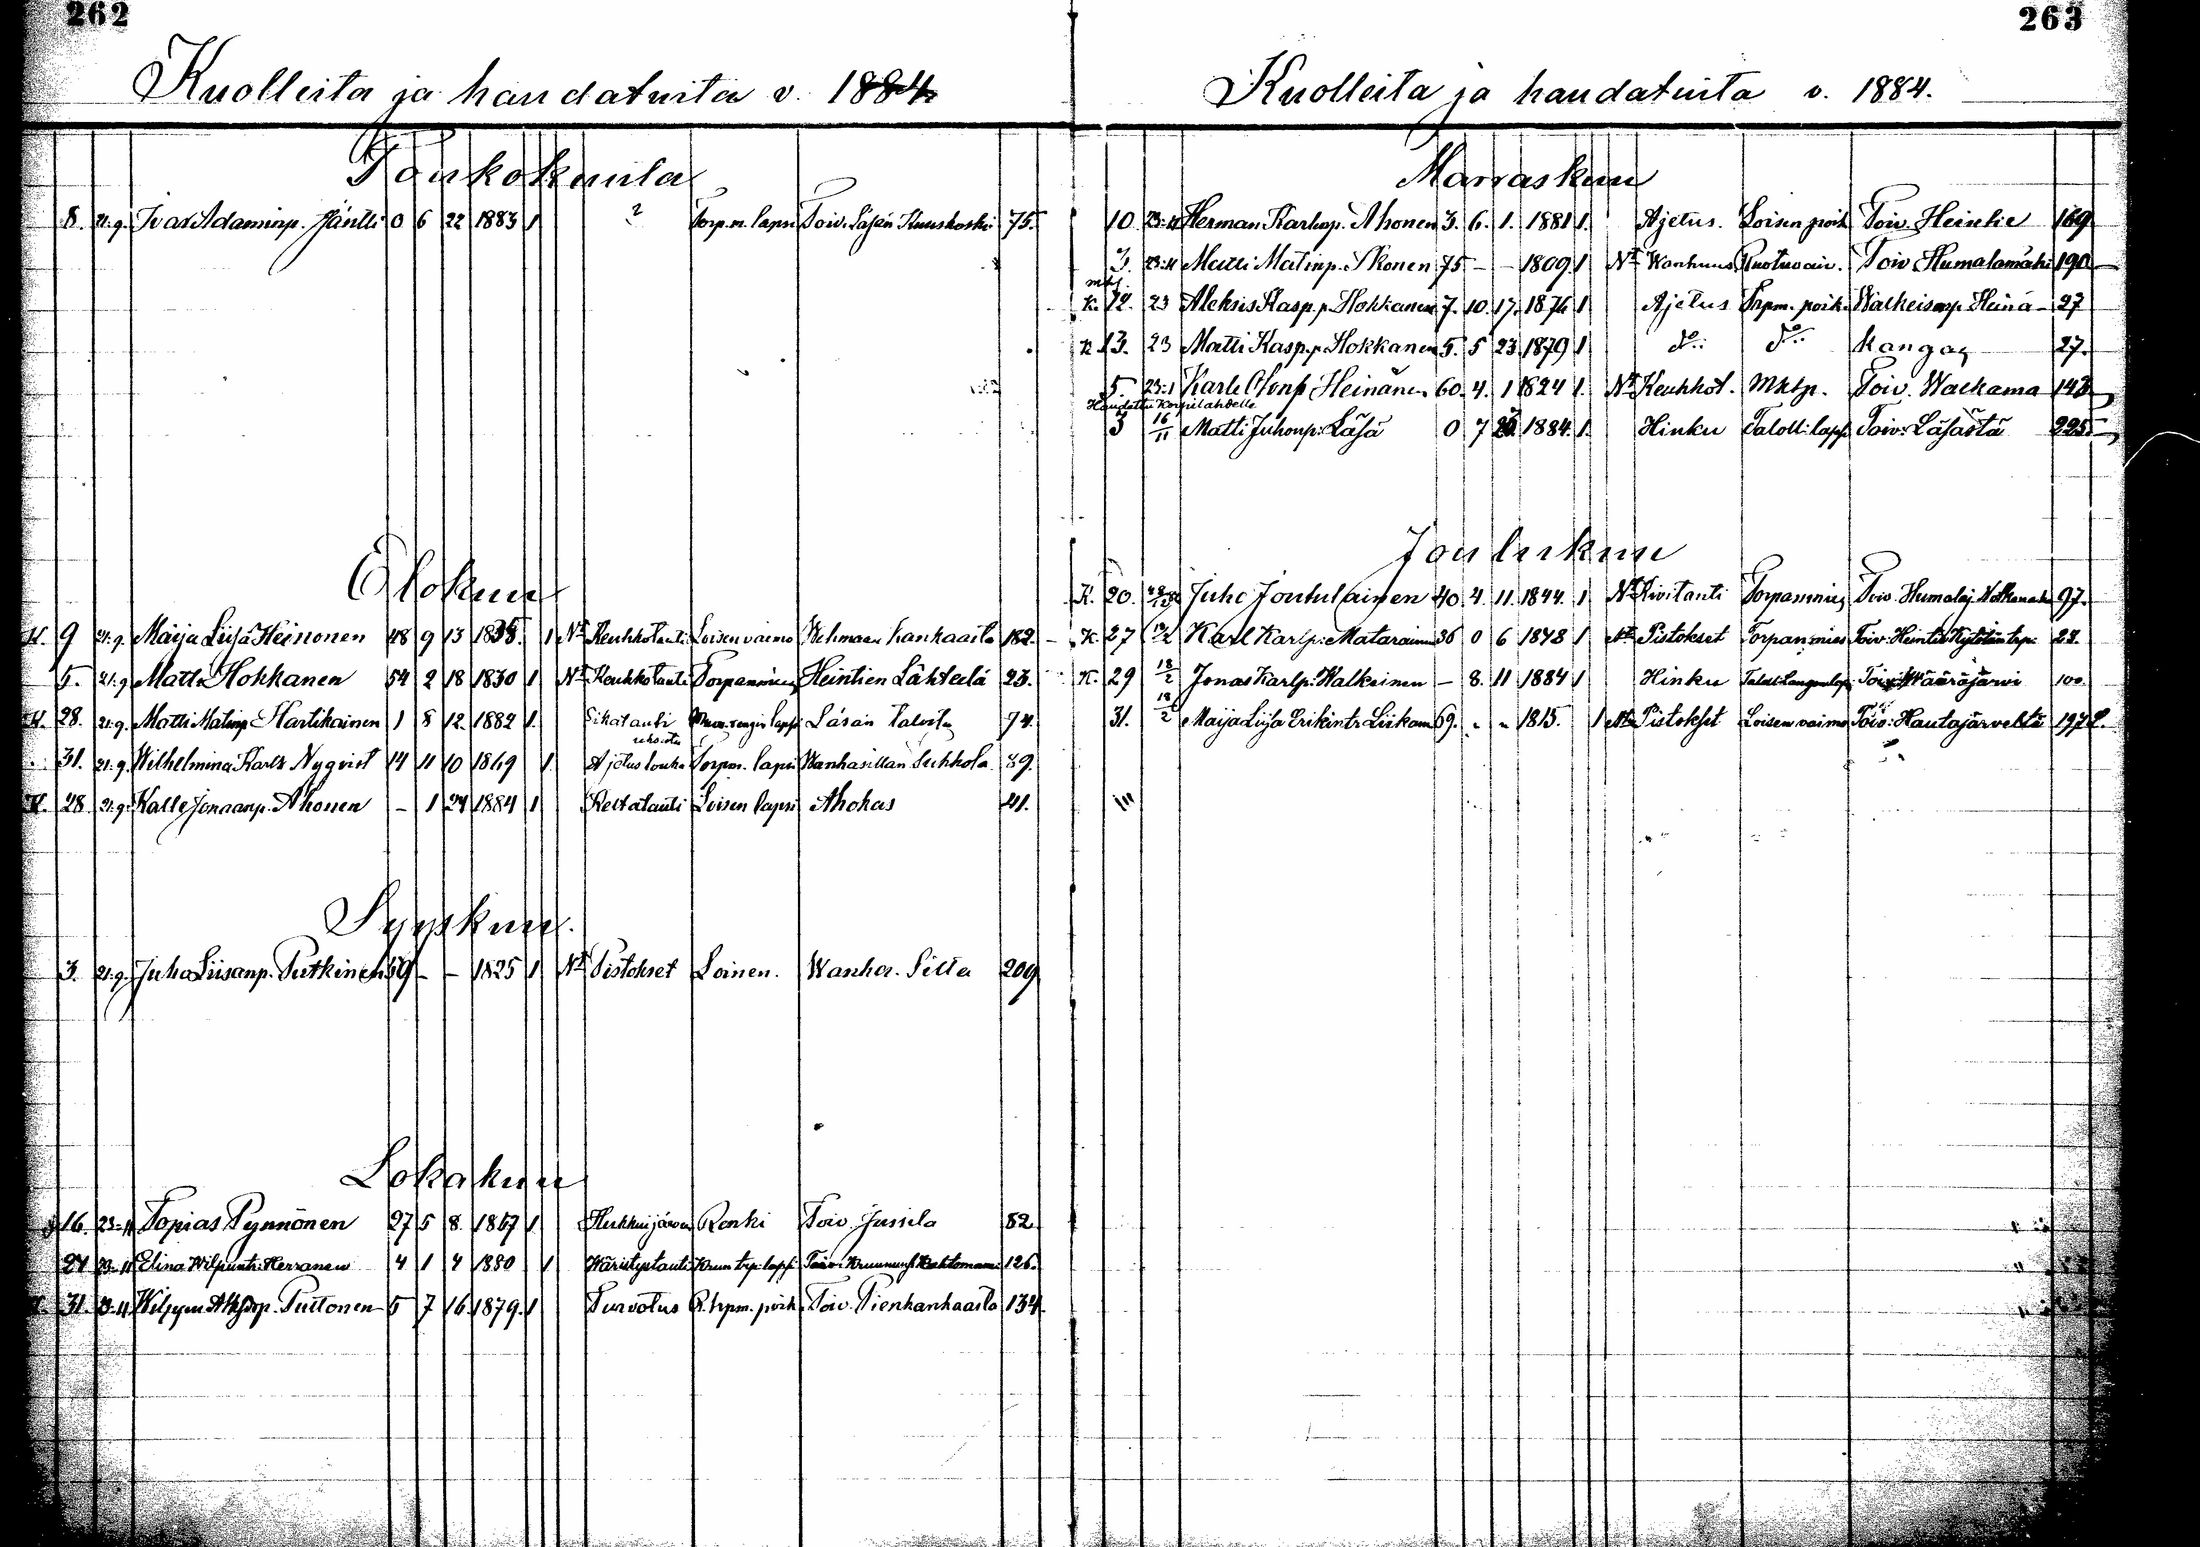 262
Kuolleita ja haudatuita v. 1884.
Toukokuula
8. 21.9. Ivar Adaminp. Jäntti 0 6 22 1883 1 ? Torp.m. lapsi Toiv. Läsän Kuuskoski 75.
Elokuu
K. 9 21.9. Maija Liisa Heinonen 48 9 13 1835. 1 Nt Keuhkotauti Loisen vaimo Wehmaan kankaalta 182.
5. 21.9 Matti Hokkanen 54 2 18 1830 1 Nt Keuhkotauti Torpanmies Heintien Lähtelä 23.
K. 28. 21.9. Matti Matinp. Hartikainen 1 8 12. 1882 1. lapsi Läsän 74.
31. 21.9. Wilhelmina Karlt. Nyqvist 14 11 10 1869 1 Ajetus Torpm. lapsi Wanhasillan Suhkola 39.
K. 28. 21.9. Kalle Jonaanp. Ahonen – 1 24 1884 1 Loisen lapsi Ahokas 41.
Syyskuu.
3. 21.9. Juho Liisanp. Putkinen 59 – – 1825 1 Nt Pistokset Loinen. Wanha Silta 209
Lokakuu
16. 23-11 Topias Pynnönen 27 5 8 1857 1. Renki Toiv. Jussila 82
24 23-11 Elina Wilpuntr. Herranen 4 1 4 1880 1 126.
31. 23-11. Wilppu Puttonen 5 7 16 1879. 1 Turvotus R. trpm. poik. Toiv. Pienkankaalta 134
263
Kuolleita ja haudatuita v. 1884.
Marraskuu
10 23-11 Herman Karlinp. Ahonen 3. 6. 1. 1881 1. Ajetus. Loisen poik Toiv. Heinkie 169
3. 23-11 Matti Matinp. Ikonen 75 – – 1809. 1 Nt Wanhuus Ruotuvaiv. Toiv Humalamäki 190
mtkj.
K. 12. 23 Aleksis Kasp.p. Hokkanen 7. 10. 17. 1876 1 Ajetus Trpm. poik. Walkeisenp. Heinä- 27
K 13. 23 Matti Kasp.p. Hokkanen 5. 5 23. 1879 1 do.. do.. kangas 27.
5. 23.1 Karle Heinänen 60. 4. 1 1824 1. Nt Keuhkot. Mktp. Toiv. Walkama 143
Haudattu Korpilahdelle
3 16/11 Matti Juhonp. Läsä 0 7 1884. 1. Hinku Taloll. laps. Toiv. Läsästä 225.
Joulukuu
K. 20. Juho Joutulainen 40. 4. 11. 1844. 1 Nt Rivitauti Torpanmies Toiv. Humalaj. 97.
K. 27 Karl Karlp. Matarainen 36 0 6 1848 1 Nt. Pistokset Torpanmies 22.
K. 29 18/2 Jonas Karlp. Kalkainen – 8. 11 1884 1 Hinku Toiv. Wääräjärvi 100.
31. 18/2 Maija Liisa Erikintr. Liikanen 69. – – 1815. 1 Nt Pistokset Loisen vaimo Toiv. Hautajärveltä 197